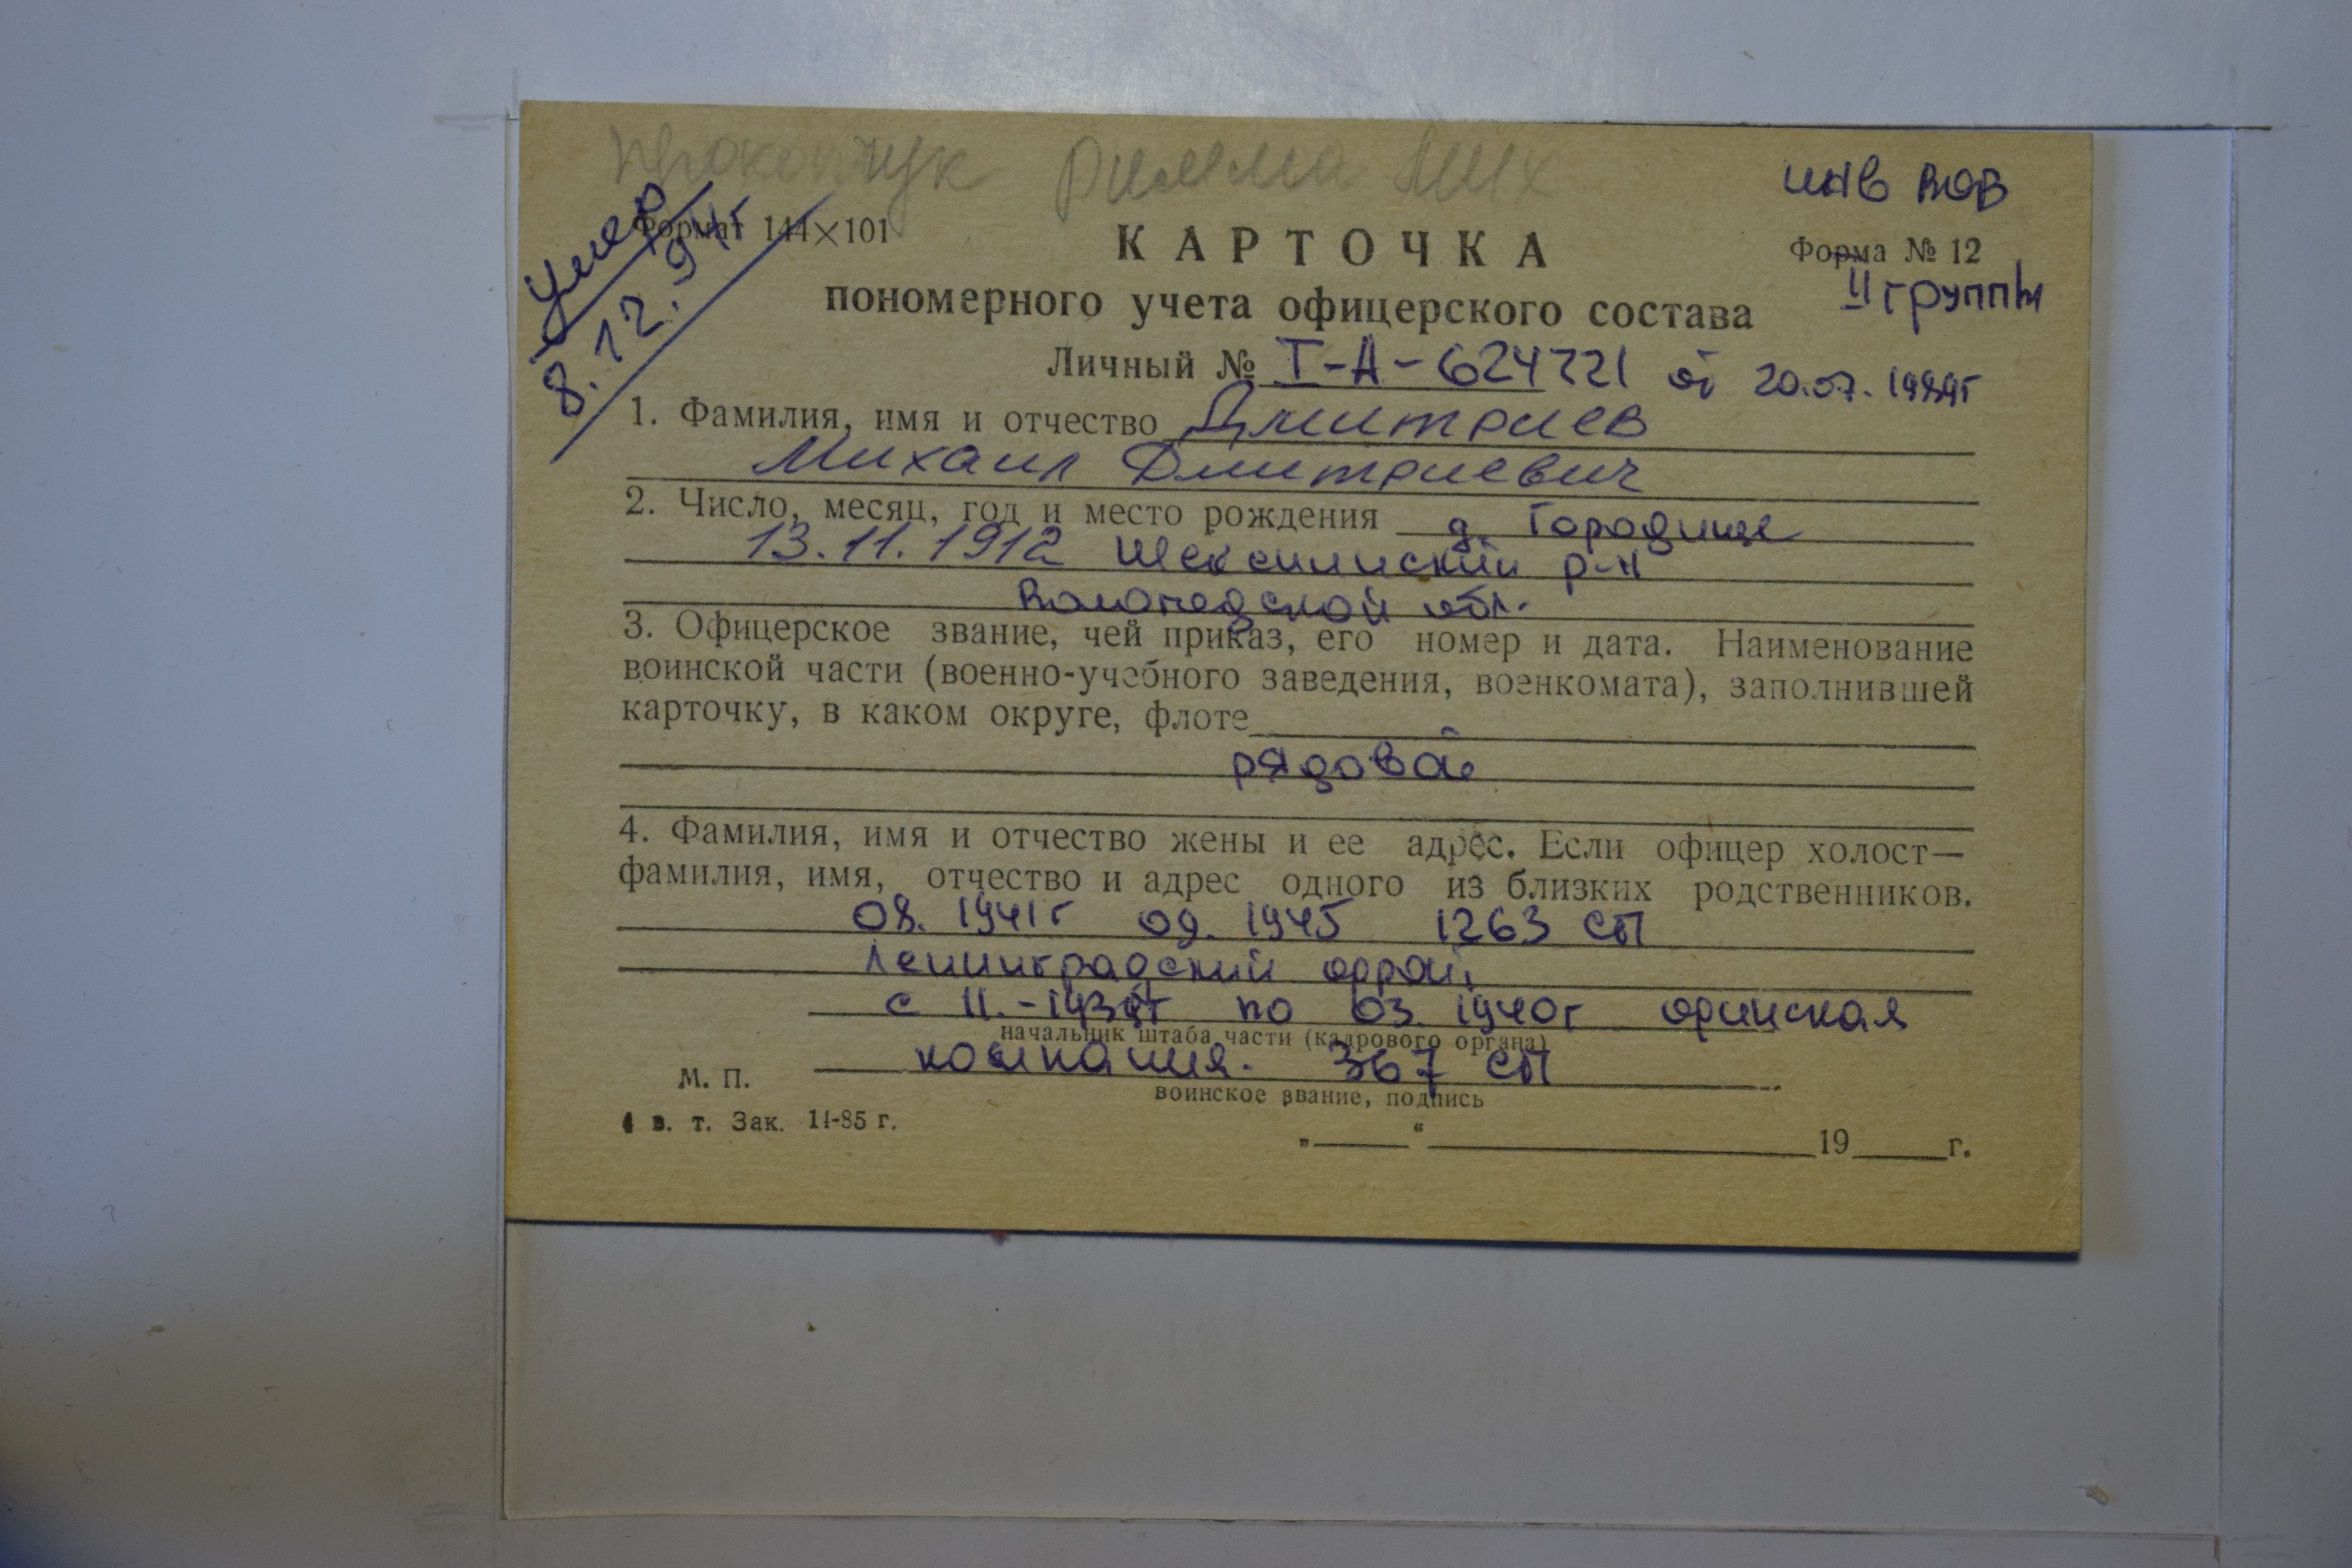 Прокопчук Римма Мих
инв ВОВ
Умер
8.12.94г
Формат 144×101
КАРТОЧКА
Форма № 12
II группы
пономерного учета офицерского состава
Личный № I-А-624721 от 20.07.1989г
1. Фамилия, имя и отчество Дмитриев
Михаил Дмитриевич
2. Число, месяц, год и место рождения д. Городище
13.11.1912 Шекснинский р-н
Вологодской обл.
3. Офицерское звание, чей приказ, его номер и дата. Наименование
воинской части (военно-учебного заведения, военкомата), заполнившей
карточку, в каком округе, флоте
рядовой
4. Фамилия, имя и отчество жены и ее адрес. Если офицер холост—
фамилия, имя, отчество и адрес одного из близких родственников.
08. 1941г 09. 1945 1263 СП
Ленинградский
с 11.-1939г по 03. 1940г финская
начальник штаба части (кадрового органа)
компания. 367 СП
М. П.
воинское звание, подпись
4 в. т. Зак. 14-85 г.
„ “ 19 г.